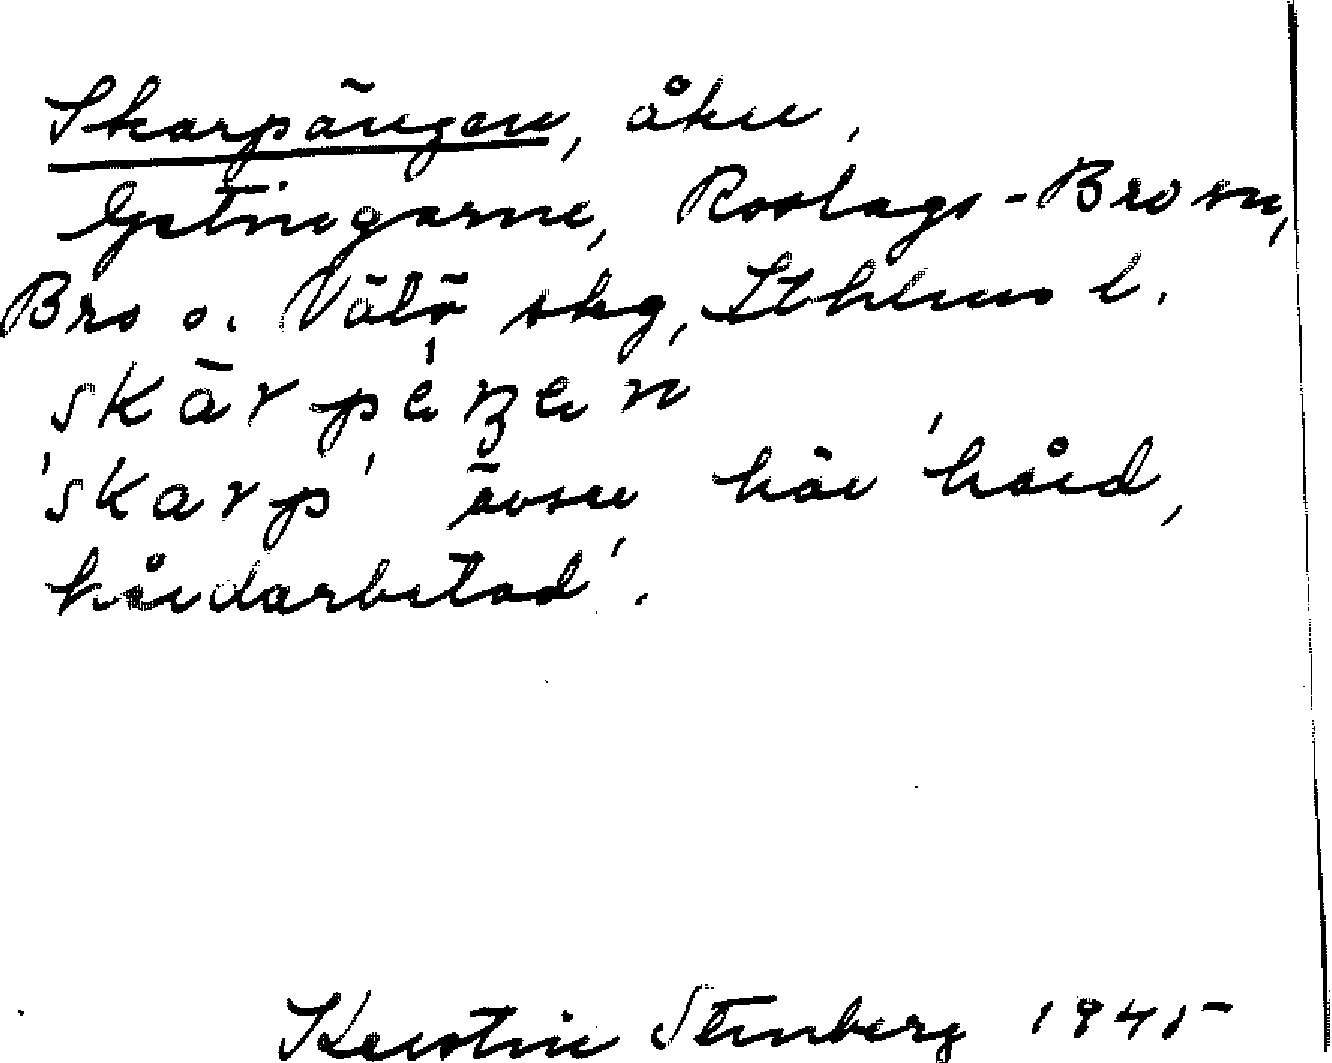 Skarpängen, åker,
Getingarne, Roslags-Bro sn,
Bro o. Vätö skg, Sthlms l.
skā̀rpéŋen
'skarp' avser här 'hård,
hårdarbetad'.
Kerstin Stenberg 1945